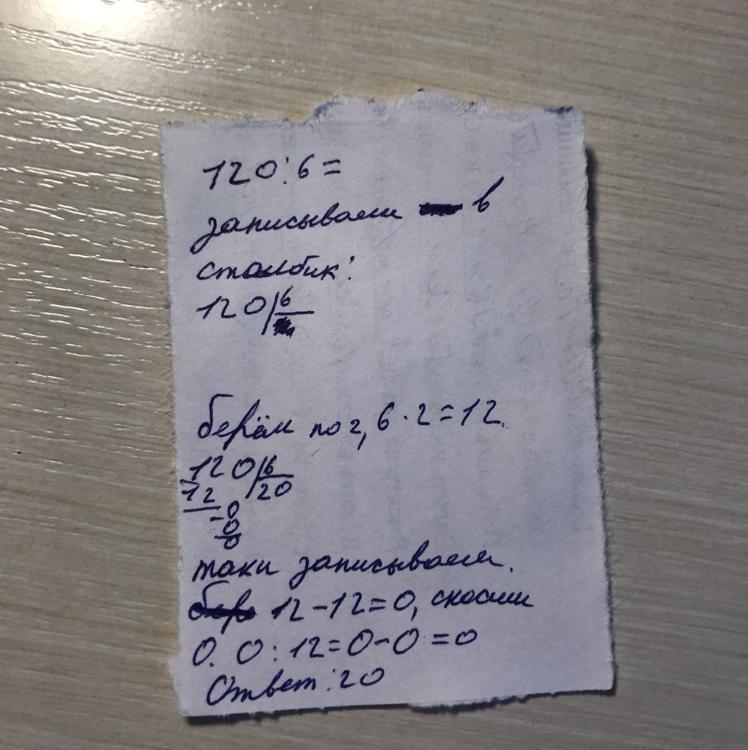 120:6=
записываем в
столбик:
120 6
берём по 2, 6·2=12.
120 6
12 20
-0
0
0
таки записываем.
12-12=0, сносим
0. 0:12=0-0=0
Ответ:20